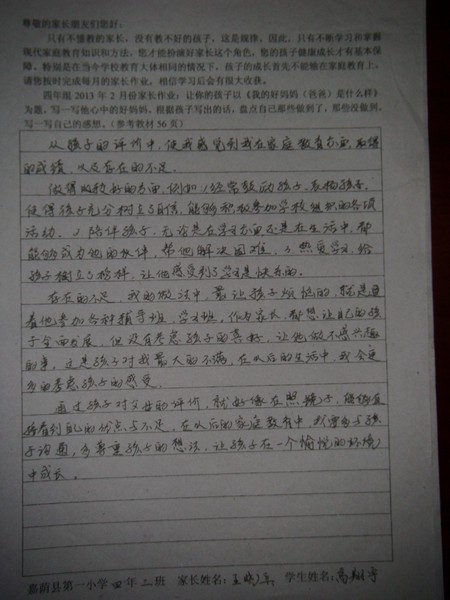 尊敬的家长朋友们您好：
只有不懂教的家长，没有教不好的孩子，这是规律。因此，只有不断学习和掌握
现代家庭教育知识和方法，您才能扮演好家长这个角色，您的孩子健康成长才有基本保
障。特别是在当今学校教育大体相同的情况下，孩子的成长首先不能输在家庭教育上。
请您按时完成每月的家长作业，相信学习后会有很大收获。
四年组 2013 年 2 月份家长作业：让你的孩子以《我的好妈妈（爸爸）是什么样》
为题，写一写他心中的好妈妈，根据孩子写出的话，盘点自己那些做到了，那些没做到，
写一写自己的感想。（参考教材 56 页）
从孩子的评价中，使我感觉到我在家庭教育方面，取得
的成绩，以及存在的不足。
做得比较好的方面，例如1经常鼓励孩子、表扬孩子，
使得孩子充分树立了自信，能够积极参加学校组织的各项
活动。2 陪伴孩子，无论是在学习方面还是在生活中，都
能够成为他的伙伴，帮他解决困难。3 热爱学习，给
孩子树立了榜样，让他感受到了学习是快乐的。
存在的不足，我的做法中，最让孩子烦恼的，就是逼
着他参加各种辅导班，学习班，作为家长都想让自己的孩
子全面发展，但没有考虑孩子的喜好，让他做不感兴趣
的事，这是孩子对我最大的不满，在以后的生活中，我会更
多的考虑孩子的感受。
通过孩子对父母的评价，就好像在照镜子，能够直
接看到自己的优点与不足，在以后的家庭教育中，我要多与孩
子沟通，多尊重孩子的想法，让孩子在一个愉悦的环境
中成长。
嘉荫县第一小学四年二班 家长姓名：王晓 学生姓名：高